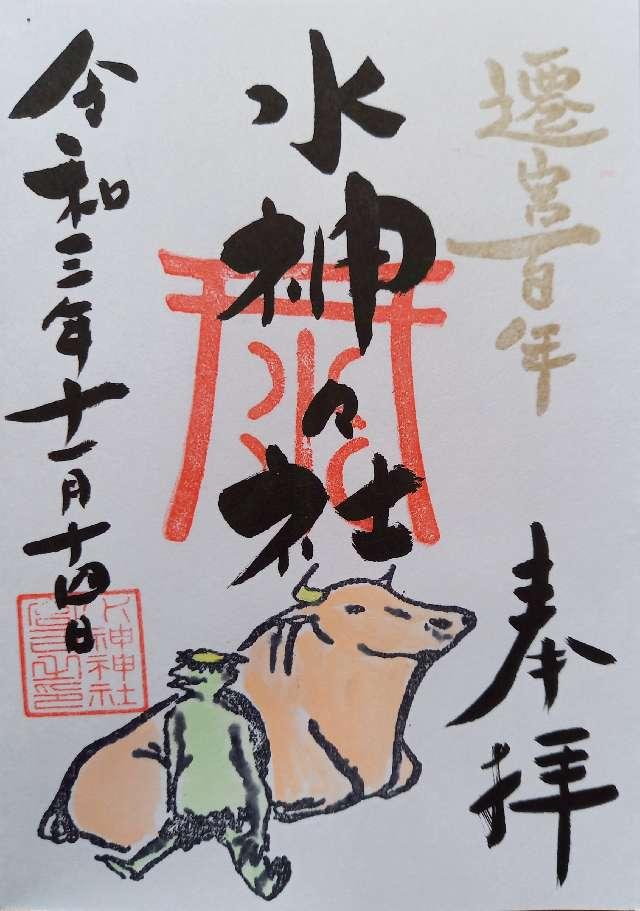 遷宮百年
奉拝
水神々社
令和三年十一月十四日
水神神社